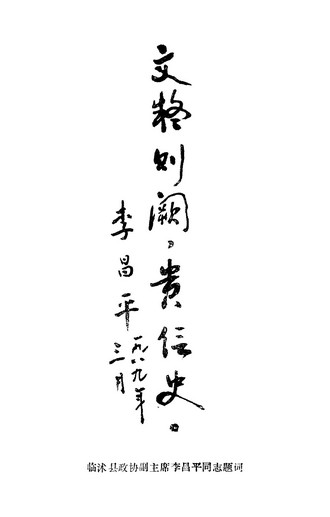 文疑则阙，貴信史。
李昌平
一九八九年
三月
临沭县政协副主席李昌平同志题词